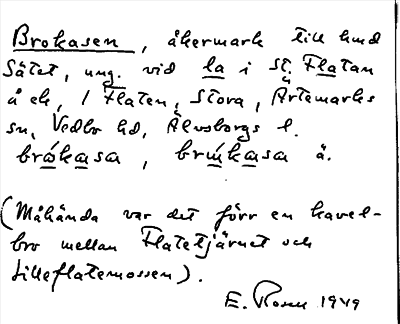 Brokasen, åkermark till hmd
Sätet, ung. vid la i St. Flatan
å ek, 1 Flaten, Stora, Ärtemarks
sn, Vedbo hd, Älvsborgs l.
brókasa, brùkasa ä.
(Måhända var det förr en kavel-
bro mellan Flatetjärnet och
Lilleflatemossen).
E. Rosen 1949